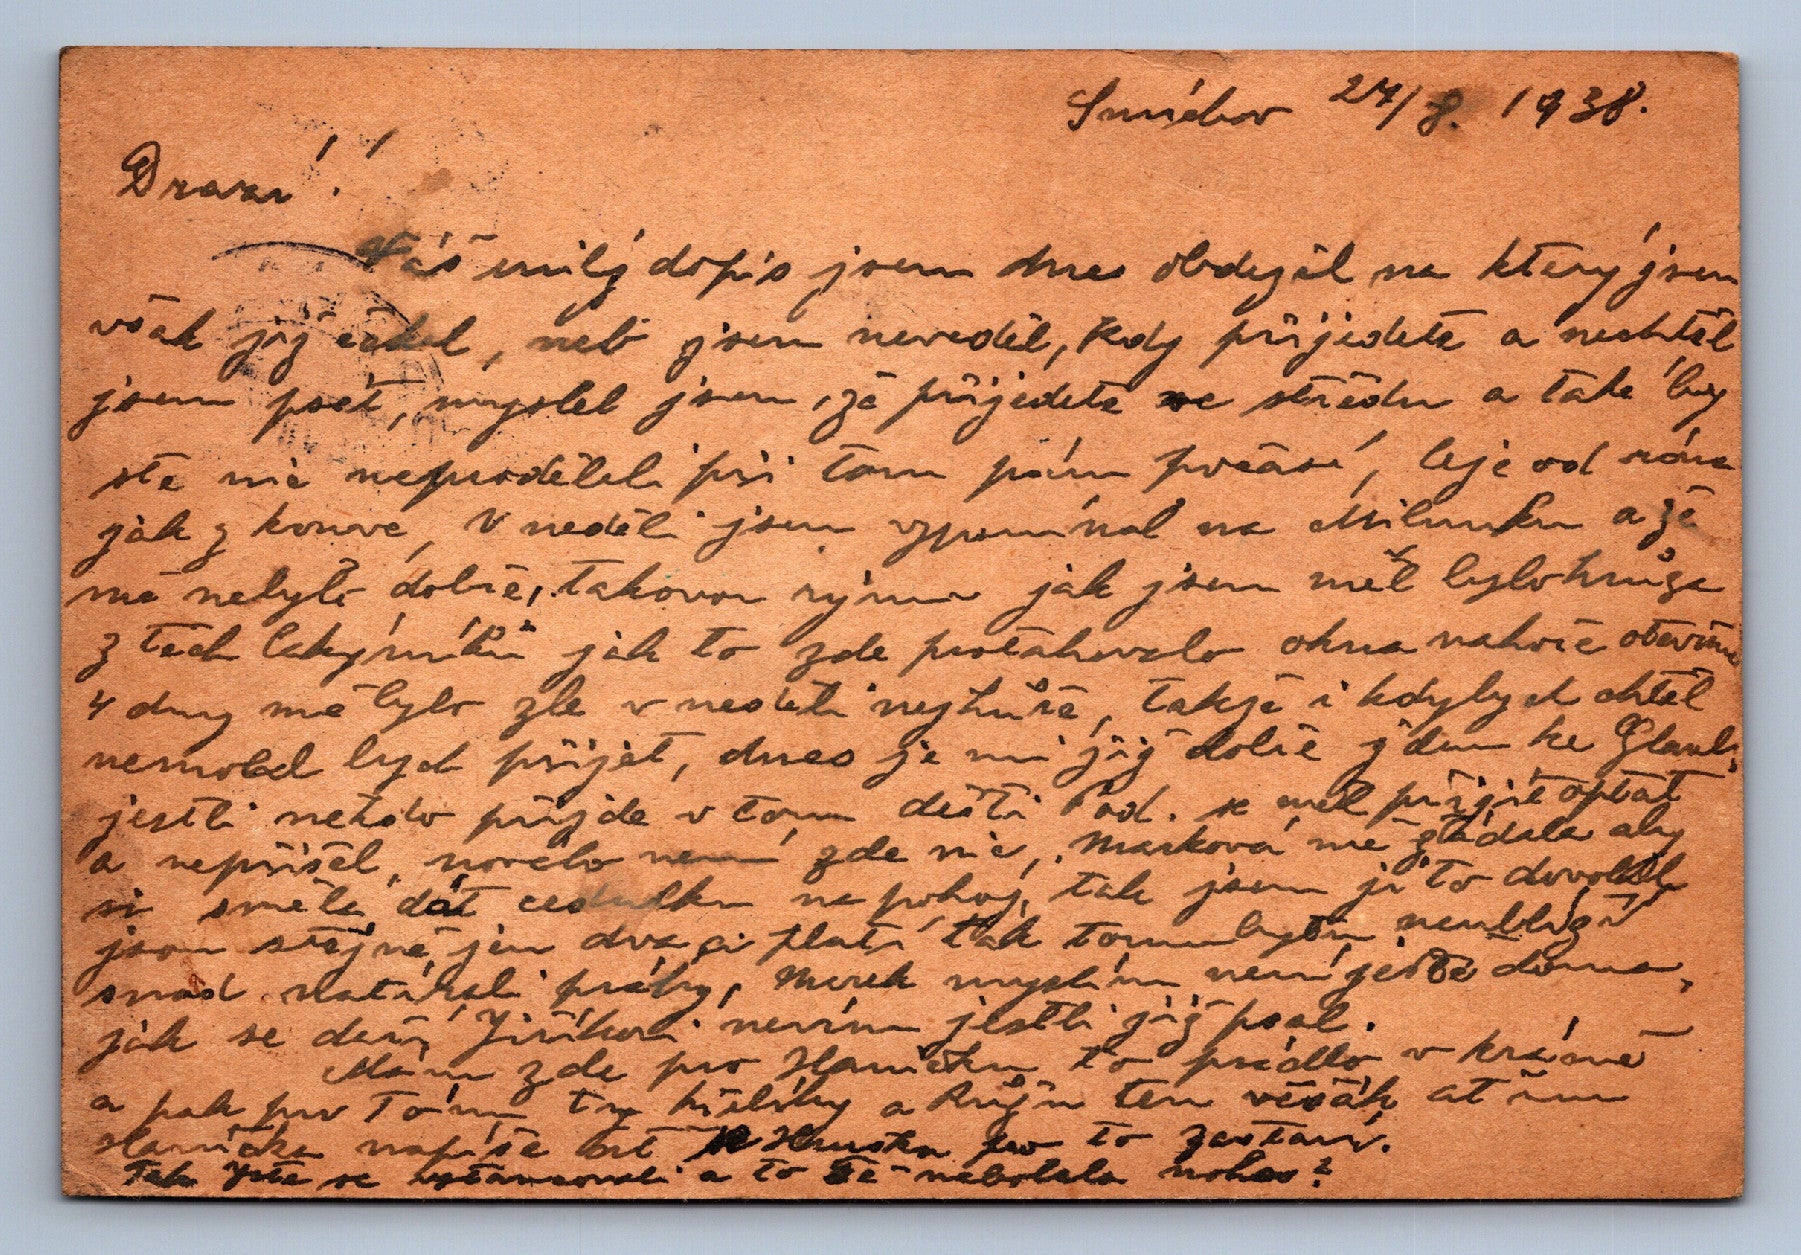 Smíchov 24/8. 1938.
Drazí!
Váš milý dopis jsem dnes obdržel na který jsem
však již čekal, neb jsem nevěděl, kdy přijedete a nechtěl
jsem psát, myslel jsem, že přijedete ve středu a také by
ste nic neprodělali při tom počasí, leje od rána
jak z konve, V neděli jsem vzpomínal na Milunku a že
mě nebylo dobře, takovou rýmu jak jsem měl bylo hrůza
z těch jak to zde protahovalo okna nahoře otevřené
4 dny mě bylo zle v neděli nejhůře, takže i kdybych chtěl
nemohl bych přijet, dnes je mi již dobře jdu ke
jestli někdo přijde v tom dešti Pod. se měl přijít optat
a nepřišel, nového není zde nic, Marková mě žádala aby
si směla dát cedulku na pokoj, tak jsem jí to dovolil
jsou stejně jen dva a platí tak tomu bytu neublíží
snad natírali práhy, Marek myslím není ještě doma,
jak se daří Jiříkovi nevím jestli již psal.
Mám zde pro Haničku to prádlo v krámě
a pak pro Tóny ty a Růžu ten věšák ať mu
Hanička napíše ať pro to zastaví.
Tak jste se a to Tě nebolela noha?